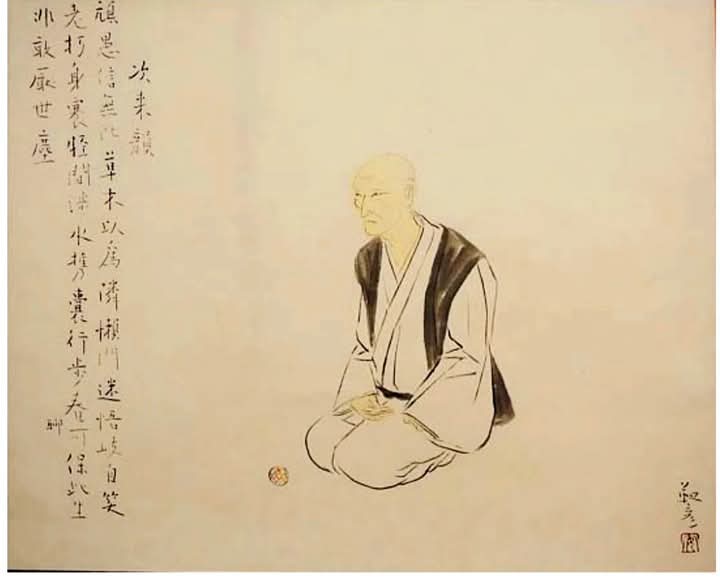 次来韻
頑愚信無比草木以為隣懶問迷悟岐自笑
老朽身褰脛間渉水携嚢行歩春可保此生
聊
非敢厭世塵
靫彦